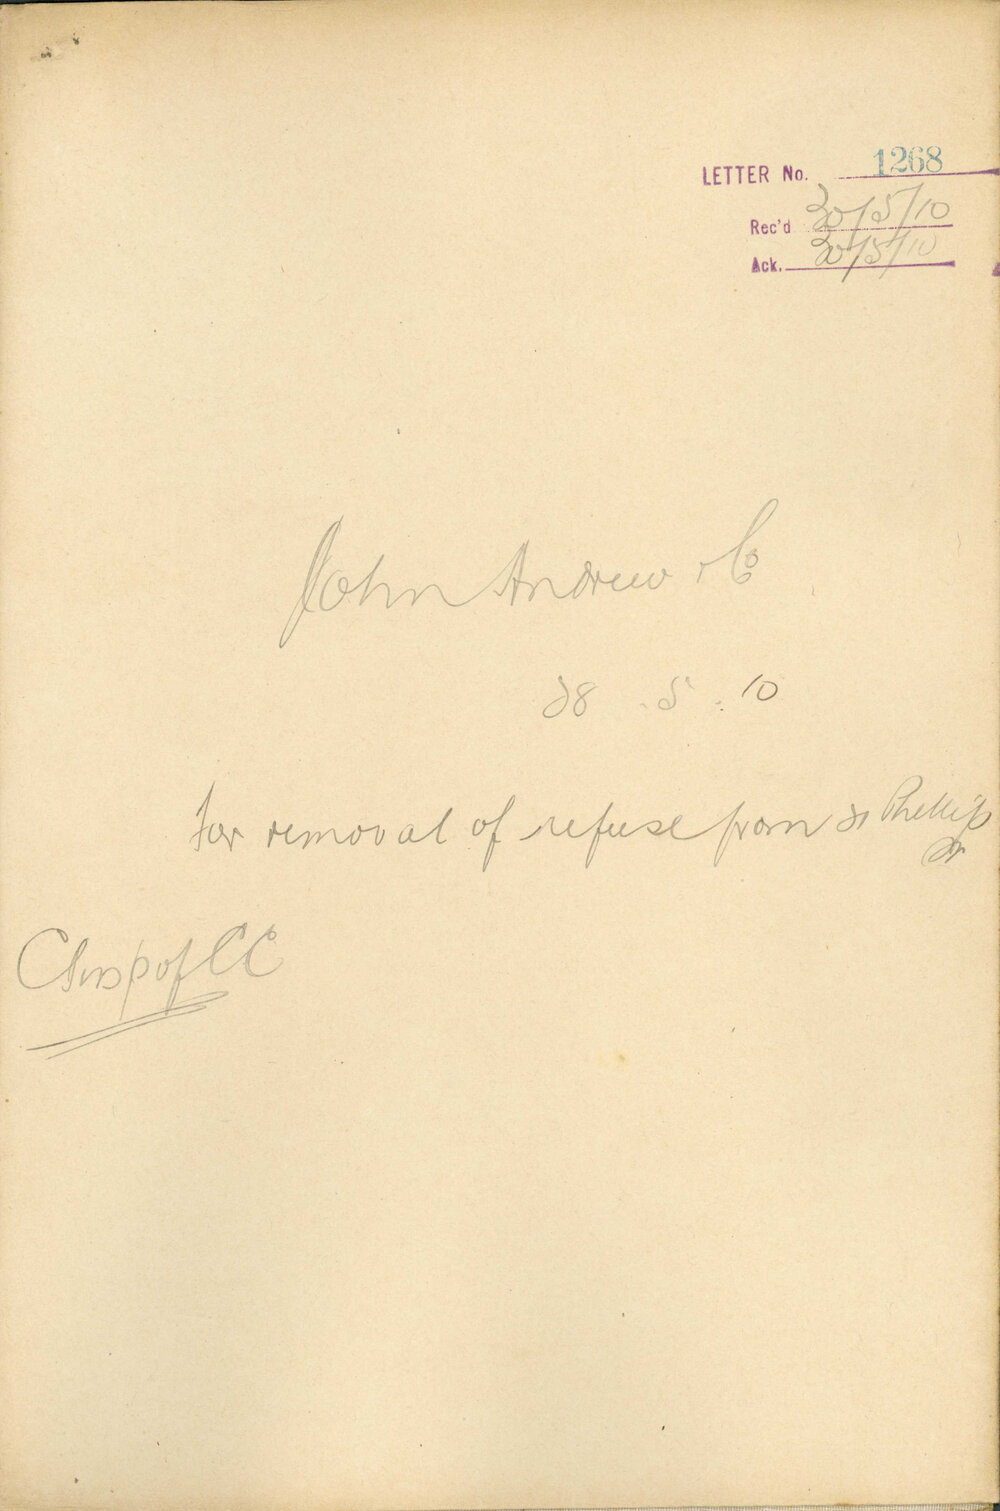 LETTER No. 1268
Rec'd 30/5/10
Ack. 30/5/10
John Andrew & Co
28 . 5 . 10
For removal of refuse from 21 Phillip
St
C Insp of CC